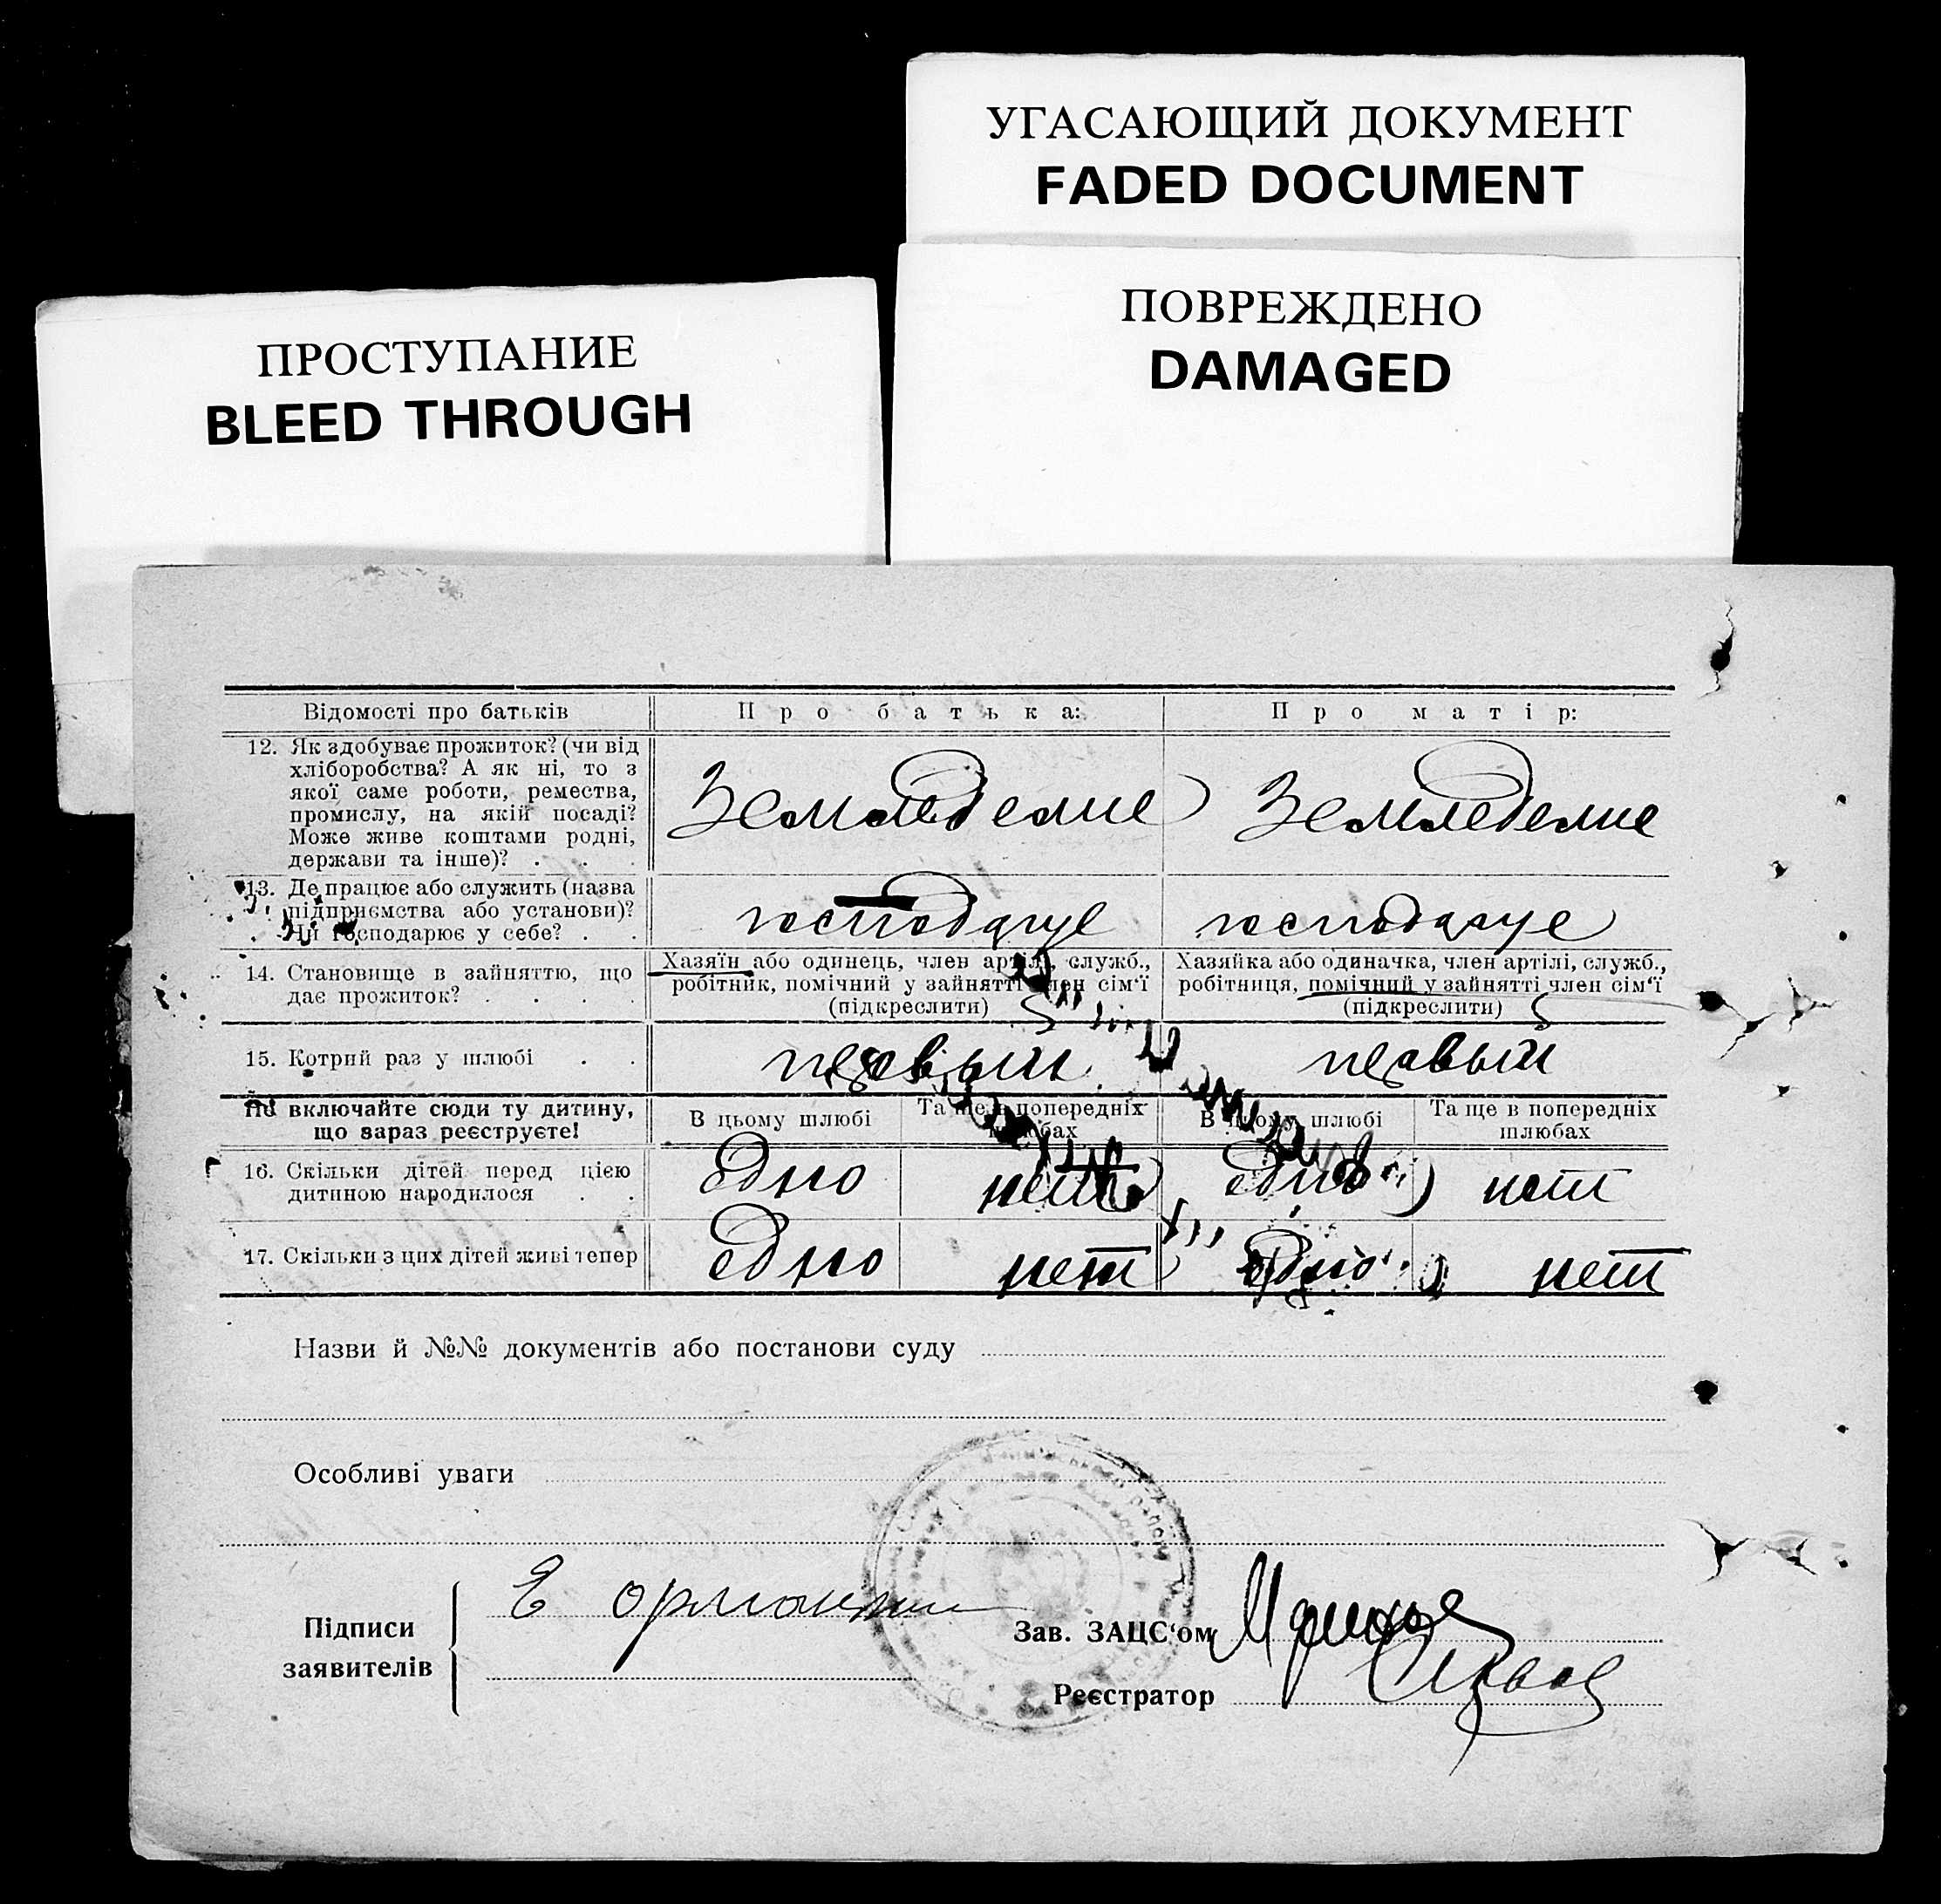 УГАСАЮЩИЙ ДОКУМЕНТ
FADED DOCUMENT
ПОВРЕЖДЕНО
DAMAGED
ПРОСТУПАНИЕ
BLEED THROUGH
Відомості про батьків
Про батька:
Про матір:
12. Як здобуває прожиток? (чи від
хліборобства? А як ні, то з
якої саме роботи, ремества,
промислу, на якій посаді?
Може живе коштами родні,
держави та інше)? . . .
Земледелие
Земледелие
13. Де працює або служить (назва
підприємства або установи)?
Чи господарює у себе? . .
господарує
господарує
14. Становище в зайняттю, що
дає прожиток? . . . .
Хазяїн або одинець, член артілі, служб.,
робітник, помічний у зайнятті член сім'ї
(підкреслити)
Хазяйка або одиначка, член артілі, служб.,
робітниця, помічний у зайнятті член сім'ї
(підкреслити)
15. Котрий раз у шлюбі . .
первый
первый
Не включайте сюди ту дитину,
що зараз реєструєте!
В цьому шлюбі
Та ще в попередніх
шлюбах
В цьому шлюбі
Та ще в попередніх
шлюбах
16. Скільки дітей перед цією
дитиною народилося . .
едно
нет
едно
нет
17. Скільки з цих дітей живі тепер
едно
нет
едно
нет
Назви й №№ документів або постанови суду
Особливі уваги
Підписи
заявителів
Е
Зав. ЗАЦС'ом
Реєстратор